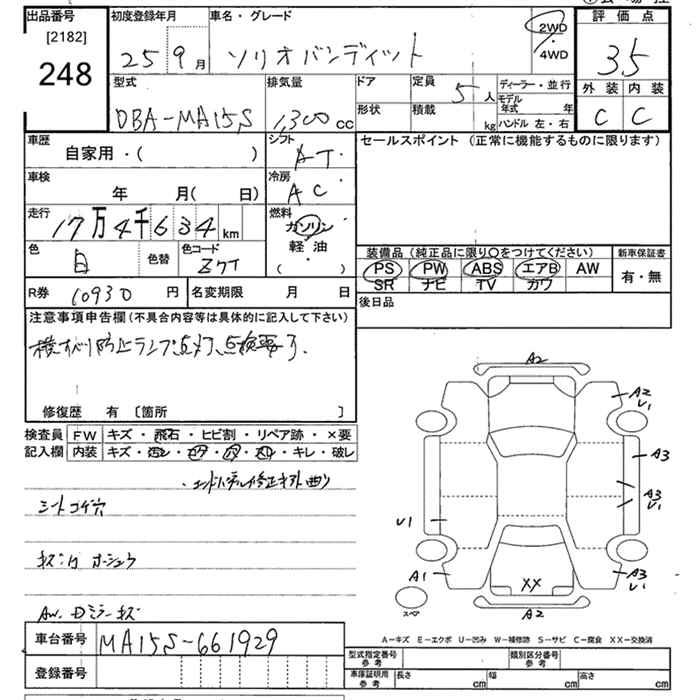 出品番号
[2182]
248
初度登録年月
25 9月
車名・グレード
ソリオバンディット
2WD
4WD
評価点
3.5
外装 内装
C C
型式
DBA-MA15S
排気量
1,300cc
ドア
形状
定員
5人
積載
kg
ディーラー・並行
モデル年式 年
ハンドル 左・右
車歴
自家用・( )
シフト
AT
車検
年 月( 日)
冷房
AC
走行
17万4千634km
燃料
ガソリン
軽・油
( ・ )
色
白
色替
色コード
Z7T
R券 10930円
名変期限 月 日
セールスポイント (正常に機能するものに限ります)
装備品 (純正品に限り〇をつけてください)
PS PW ABS エアB AW
SR ナビ TV カワ
新車保証書
有・無
後日品
注意事項申告欄(不具合内容等は具体的に記入して下さい)
横すべり防止ランプ点灯、点検要す.
修復歴 有 〔箇所 〕
検査員記入欄
FW キズ・飛石・ヒビ割・リペア跡・×要
内装 キズ・キレ・破レ
シートコゲ穴
AW. Dミラーキズ
A2
A2
U1
A3
A3
U1
U1
A1
A3
U1
XX
A2
スペア
A-キズ E-エクボ U-凹み W-補修跡 S-サビ C-腐食 XX-交換済
車台番号
MA15S-661929
登録番号
型式指定番号
参考
類別区分番号
参考
車庫証明用
参考
長さ cm
幅 cm
高さ cm